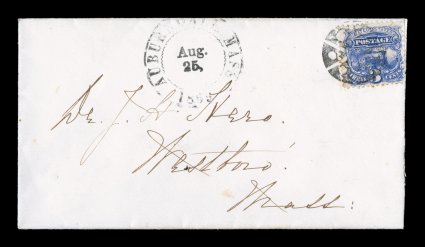 AUBURNDALE MASS.
Aug.
25,
1869
POSTAGE
3
Dr. J. H. Hero.
Westboro'.
Mass: